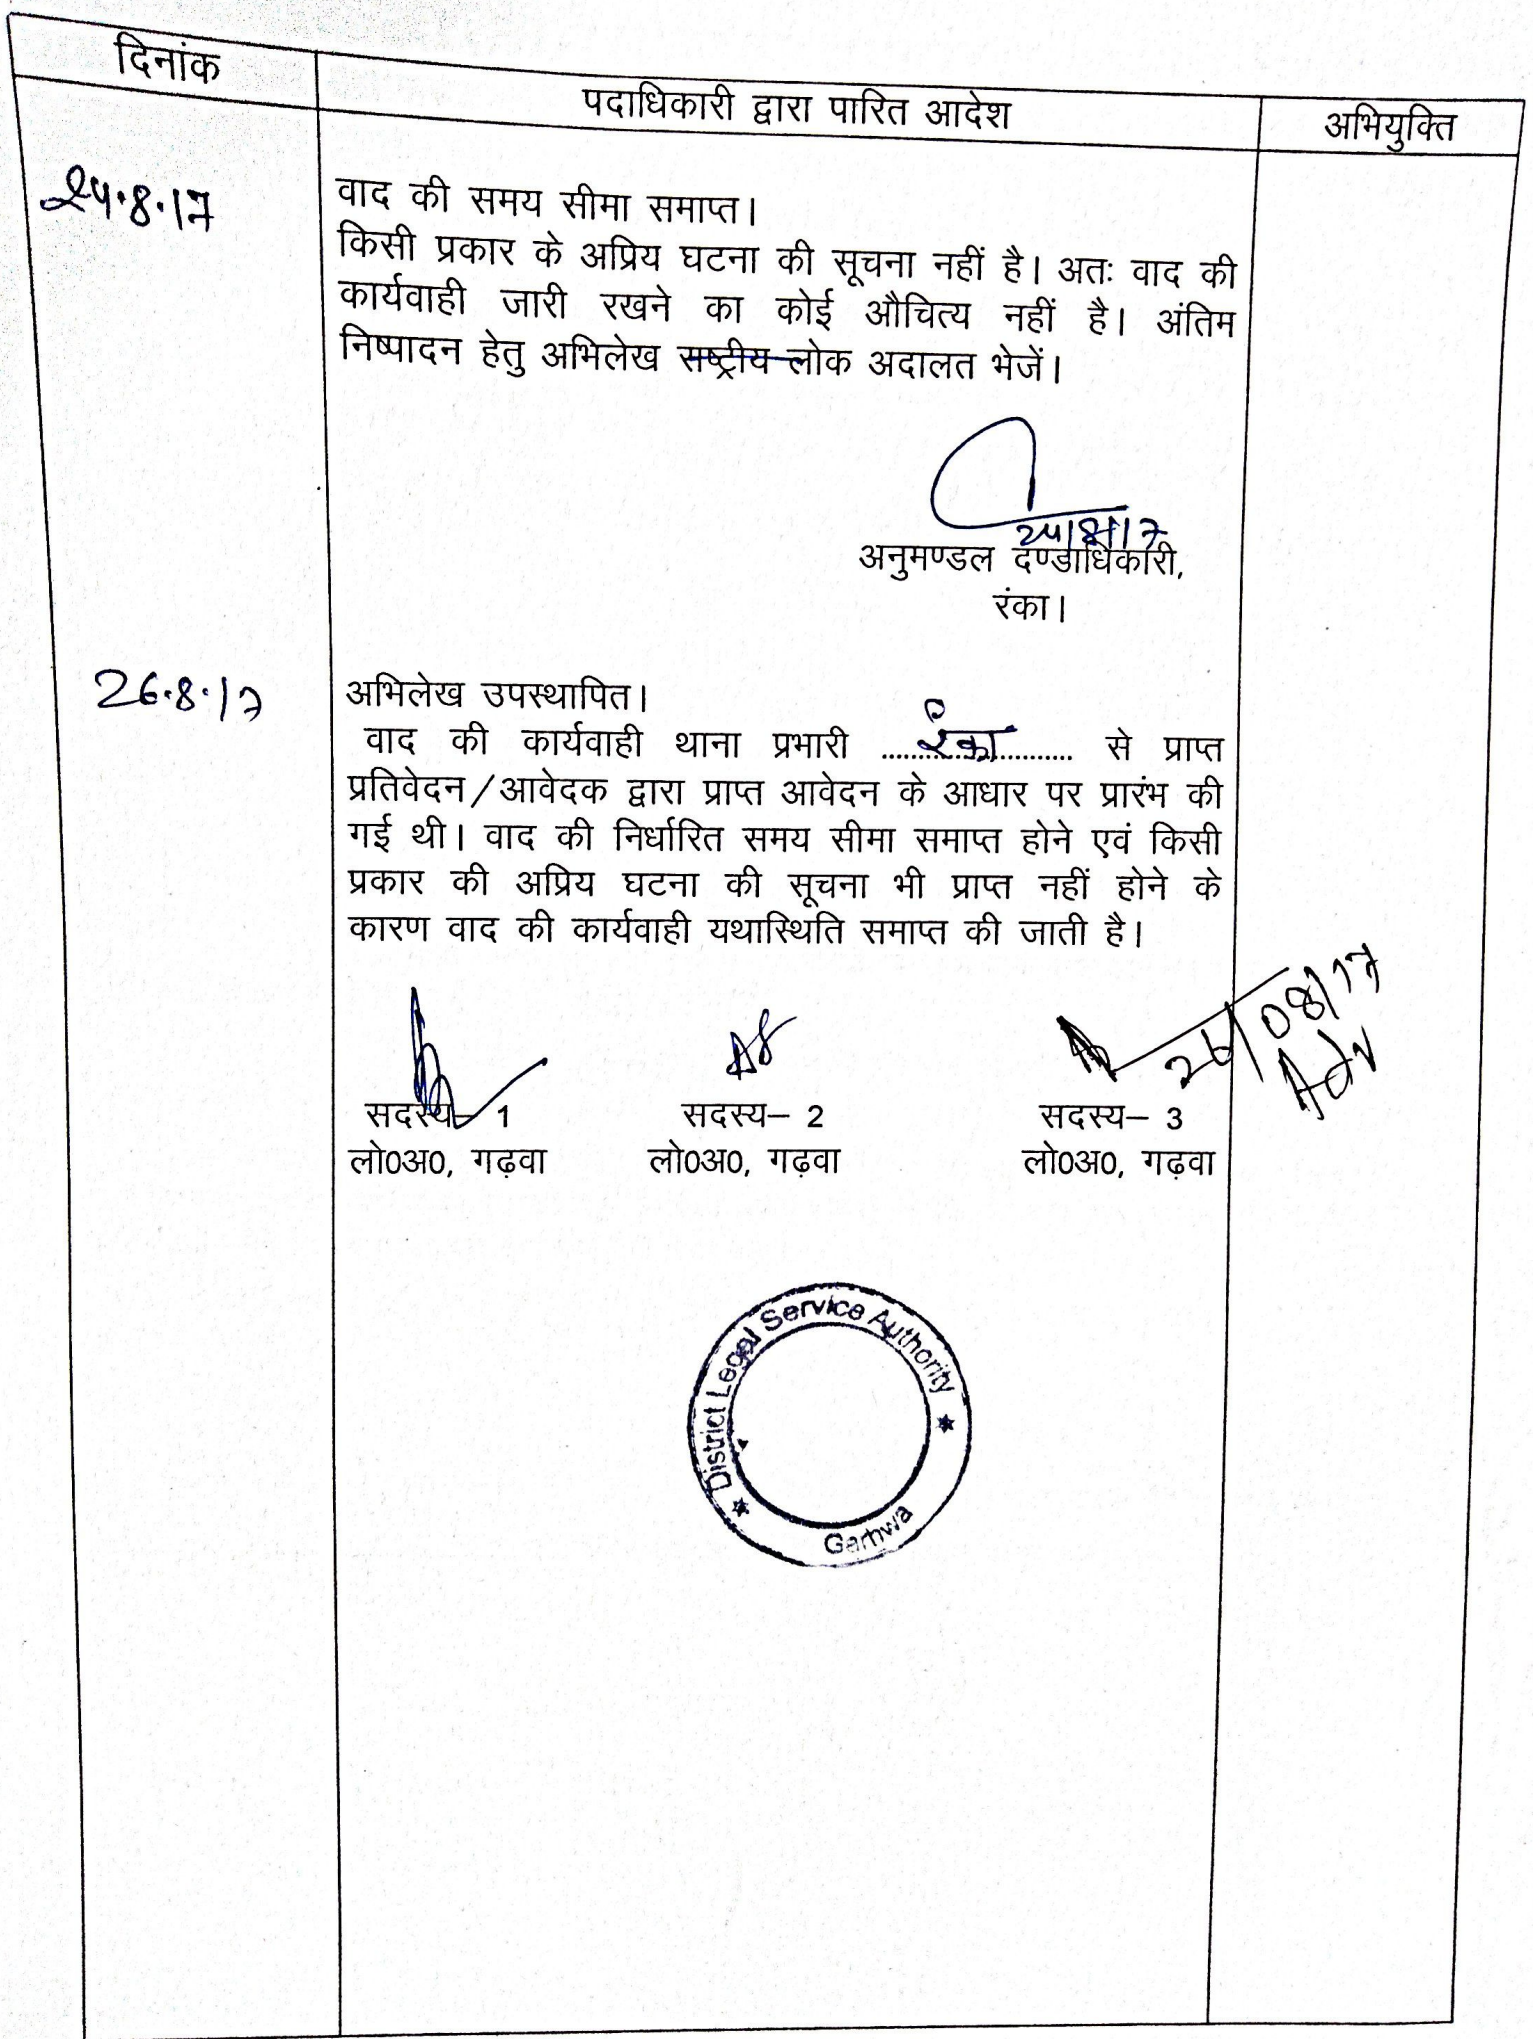 दिनांक
पदाधिकारी द्वारा पारित आदेश
अभियुक्ति
24.8.17
वाद की समय सीमा समाप्त।
किसी प्रकार के अप्रिय घटना की सूचना नहीं है। अतः वाद की
कार्यवाही जारी रखने का कोई औचित्य नहीं है। अंतिम
निष्पादन हेतु अभिलेख राष्ट्रीय लोक अदालत भेजें।
अनुमण्डल दण्डाधिकारी,
रंका।
26.8.17
अभिलेख उपस्थापित।
वाद की कार्यवाही थाना प्रभारी ....रंका.... से प्राप्त
प्रतिवेदन/आवेदक द्वारा प्राप्त आवेदन के आधार पर प्रारंभ की
गई थी। वाद की निर्धारित समय सीमा समाप्त होने एवं किसी
प्रकार की अप्रिय घटना की सूचना भी प्राप्त नहीं होने के
कारण वाद की कार्यवाही यथास्थिति समाप्त की जाती है।
26/08/17
Adv
सदस्य– 1 सदस्य– 2 सदस्य– 3
लो0अ0, गढ़वा लो0अ0, गढ़वा लो0अ0, गढ़वा
District Legal Service Authority
Garhwa